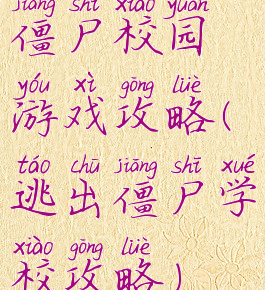 jiāng shī xiào yuán
僵尸校园
yóu xì gōng lüè
游戏攻略(
táo chū jiāng shī xué
逃出僵尸学
xiào gōng lüè
校攻略)